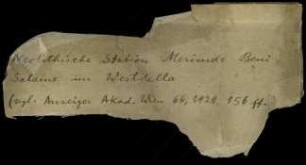 Neolithische Station Merimde Beni
Salame im Westdelta
(vgl. Anzeiger Akad. Wien 66, 1929. 156 ff.)